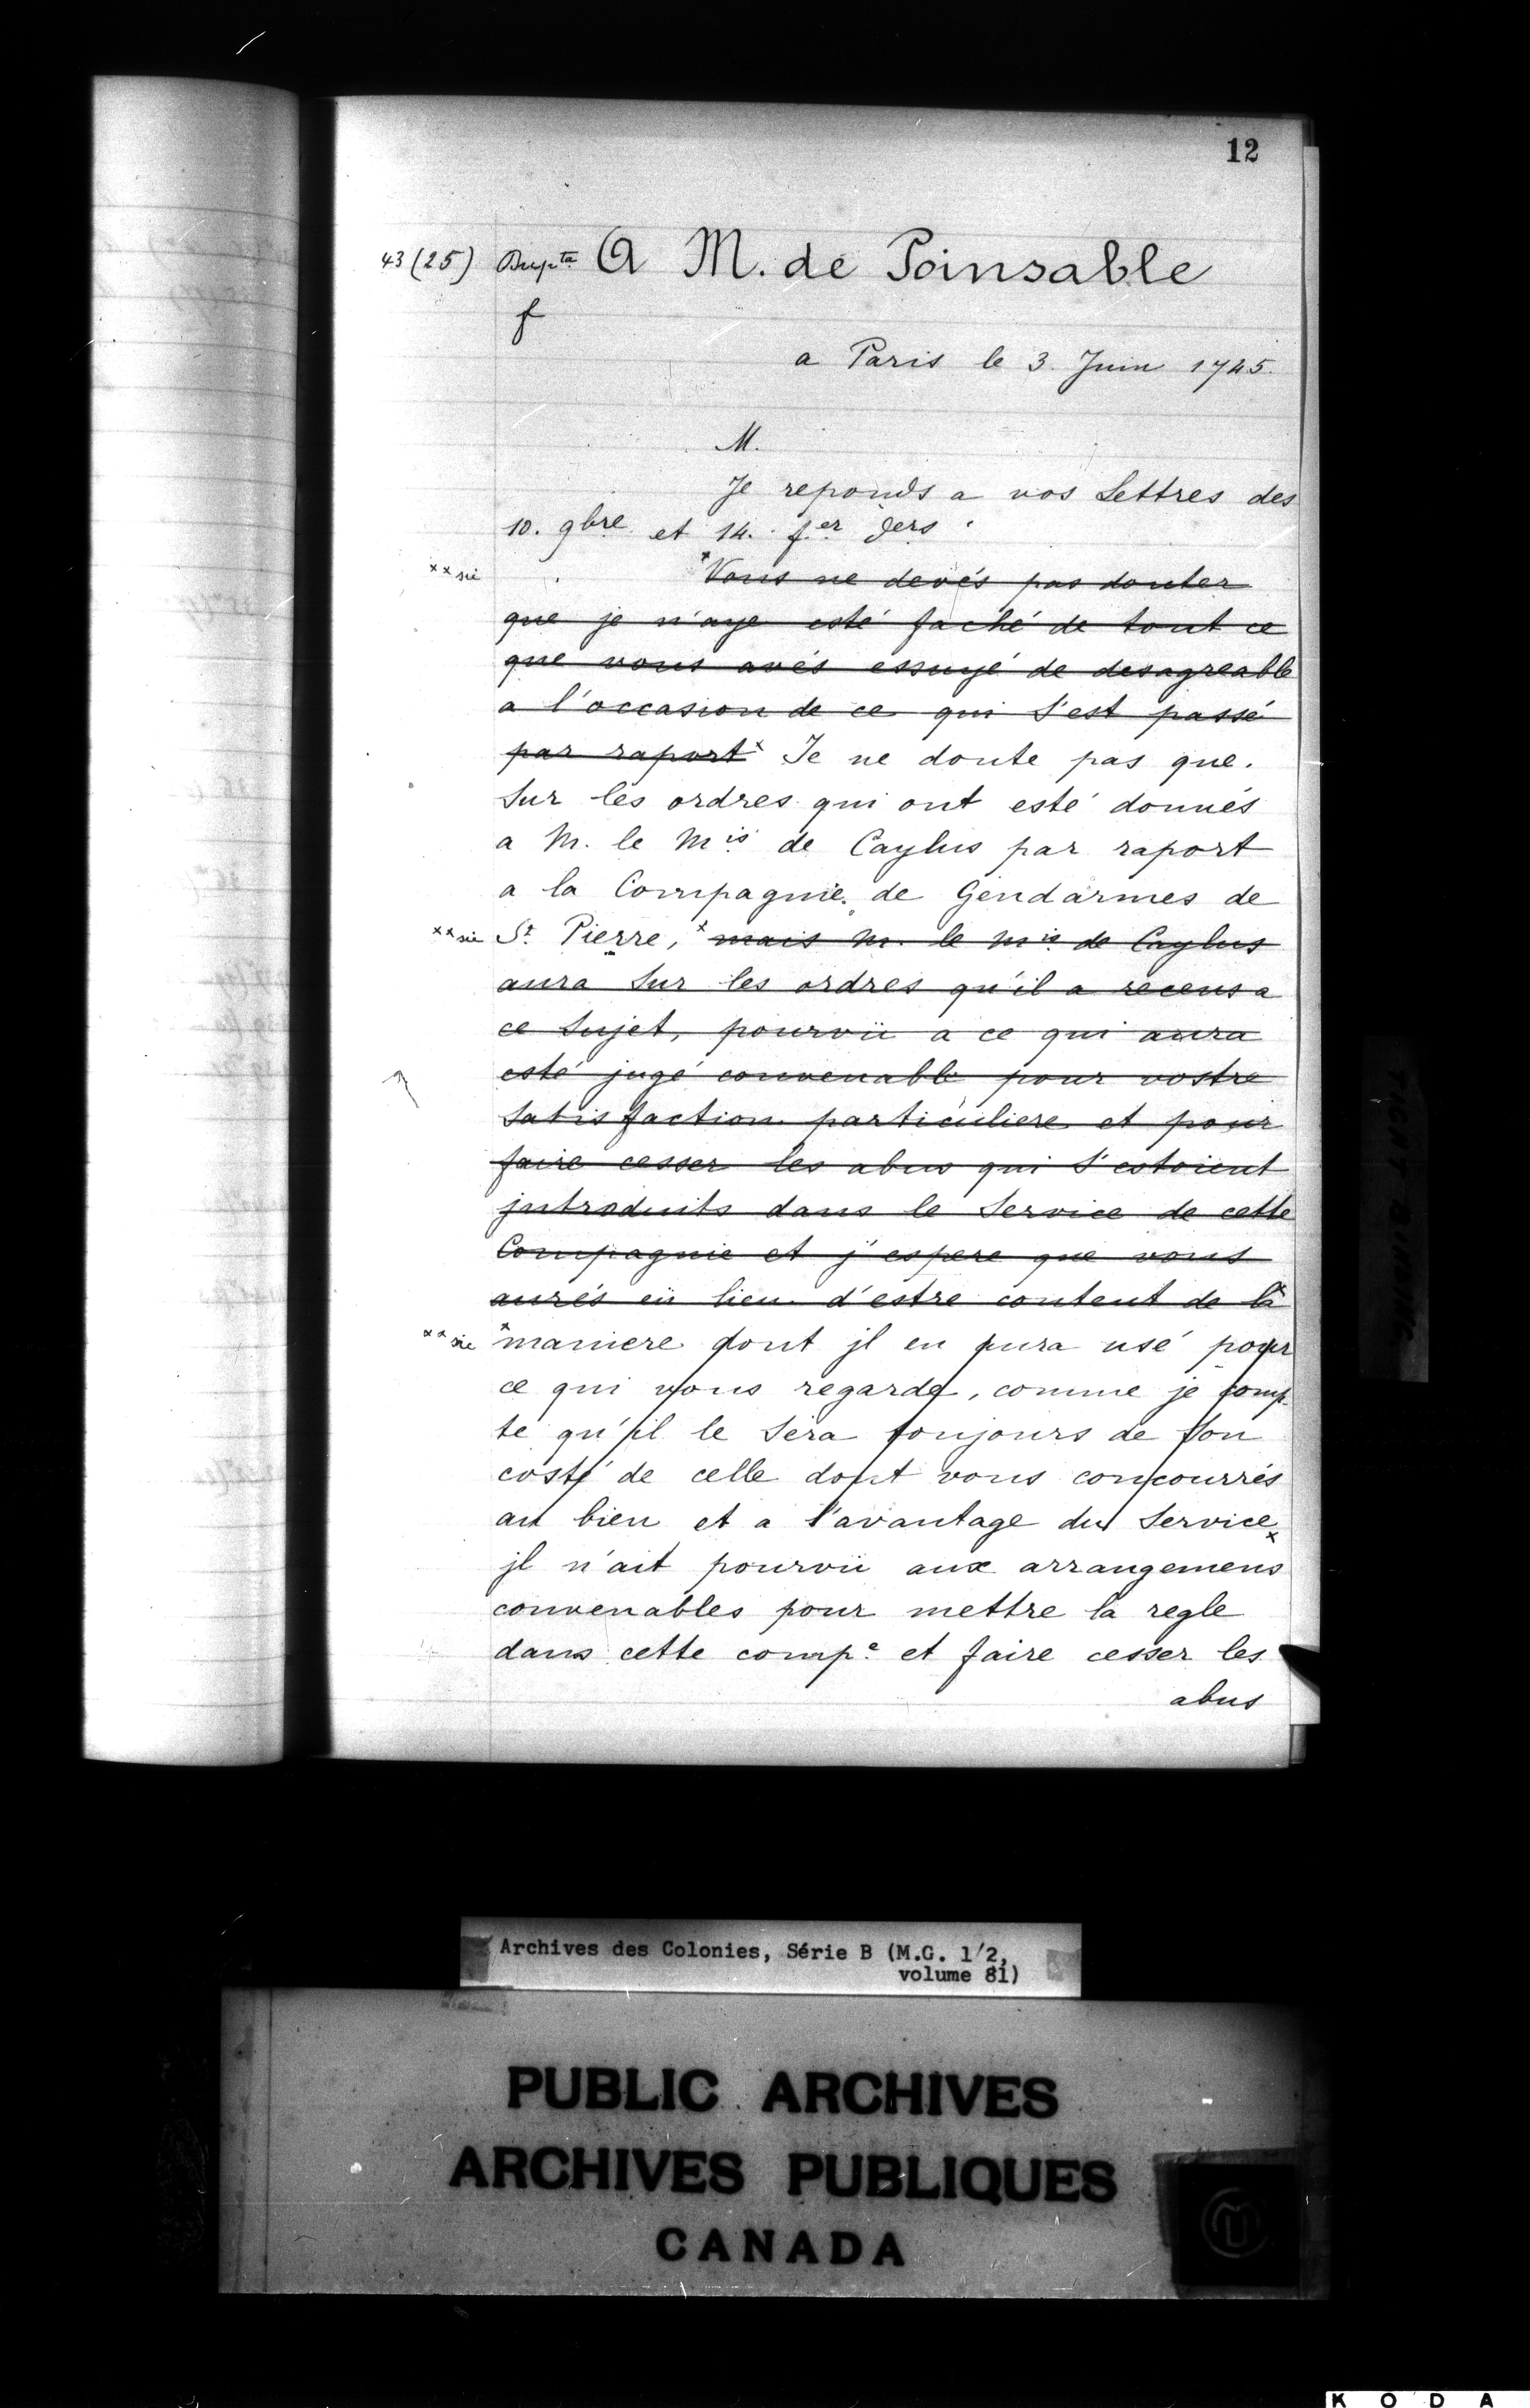 12
43 (25) Dup.ta A M. de Poinsable
f
a Paris le 3. Juin 1745.
M.
Je reponds a vos Lettres des
10. 9bre et 14. f.er ders.
xx sic *Vous ne devés pas douter
que je n'aye esté faché de tout ce
que vous avés essuyé de desagreable
a l'occasion de ce qui S'est passé
par raport x Je ne doute pas que.
Sur les ordres qui ont esté donnés
a M. le M.is de Caylus par raport
a la Compagnie. de Gendarmes de
xx sic St. Pierre, x mais M. le M.is de Caylus
aura Sur les ordres qu'il a receus a
ce Sujet, pourvû a ce qui aura
esté jugé convenable pour vostre
Satisfaction particuliere et pour
faire cesser les abus qui S'estoient
jntroduits dans le Service de cette
Compagnie et j'espere que vous
aurés eü lieu d'estre content de la x
xx sic *maniere dont jl en aura usé pour
ce qui vous regarde, comme je comp-
te qu'jl le Sera toujours de Son
costé de celle dont vous concourrés
au bien et a l'avantage du Service x
jl n'ait pourvü aux arrangemens
convenables pour mettre la regle
dans cette comp.e et faire cesser les
abus
Archives des Colonies, Série B (M.G. 1/2,
volume 81)
PUBLIC ARCHIVES
ARCHIVES PUBLIQUES
CANADA
KODA